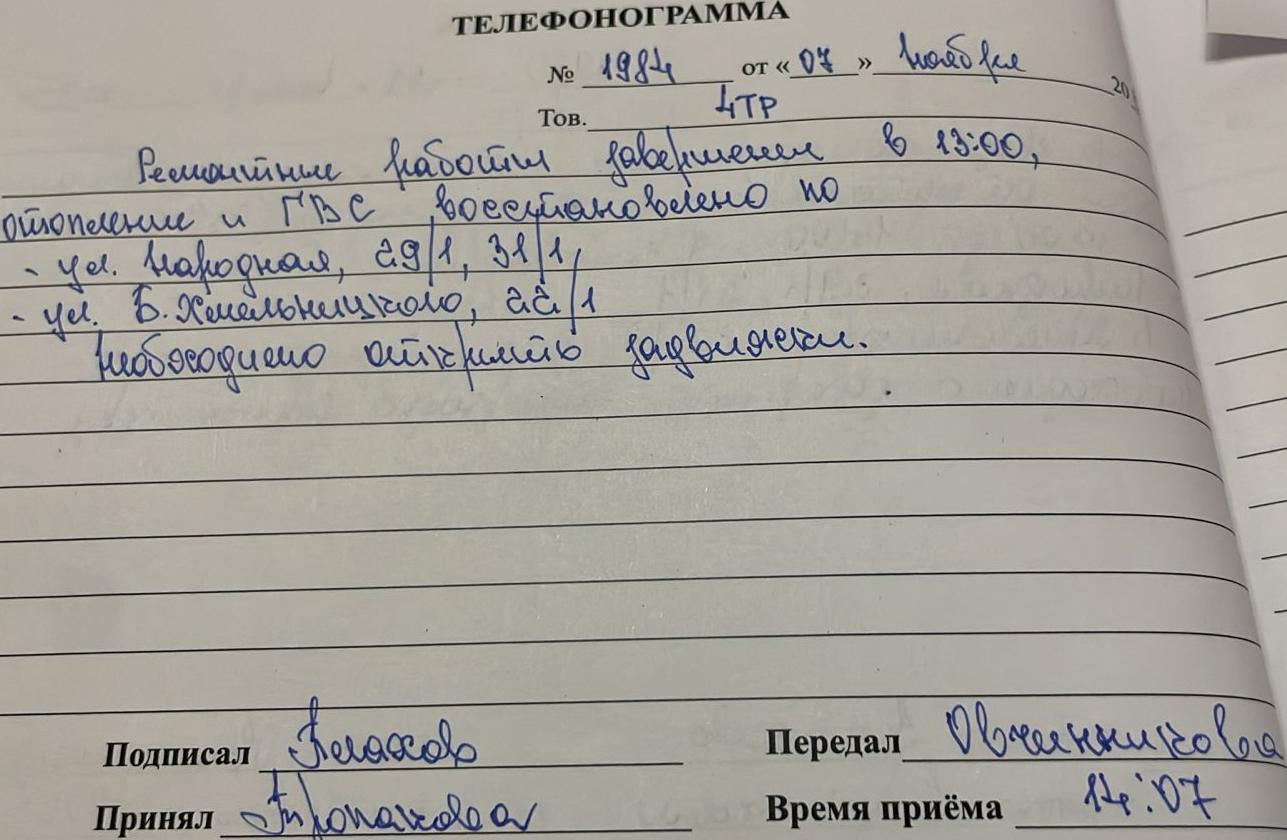 ТЕЛЕФОНОГРАММА
№ 1984 от «07» ноября 20
Тов. 4ТР
Ремонтные работы завершены в 13:00,
отопление и ГВС восстановлено по
- ул. Народная, 29/1, 31/1,
- ул. Б. Хмельницкого, 22/1
Необходимо открыть задвижки.
Подписал Влахов Передал Овчинникова
Принял Время приёма 14:07